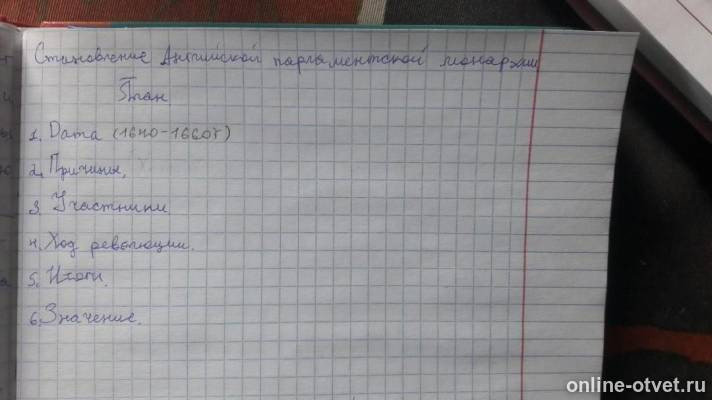 Становление Английской парламентской монархии
План
1. Дата (1640-1660г)
2. Причины.
3. Участники.
4. Ход революции.
5. Итоги.
6. Значение.
online-otvet.ru